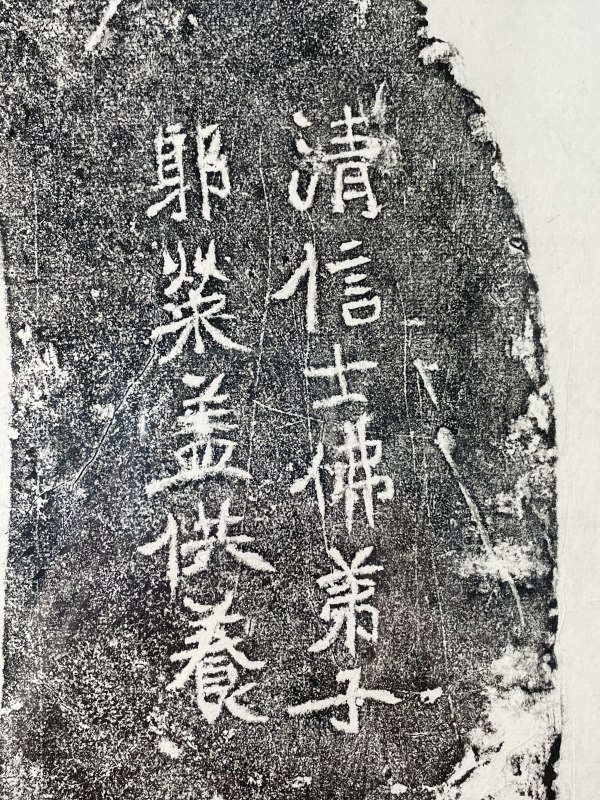 清信士佛弟子
郭荣盖供養